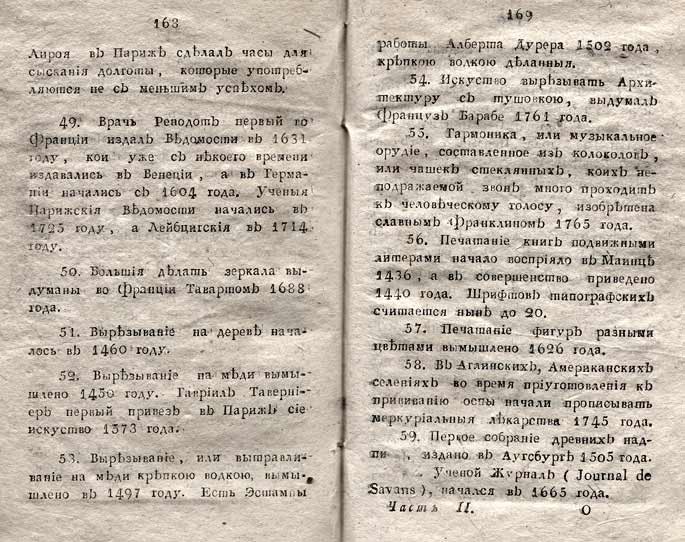 168
Лироя въ Парижѣ сдѣлалъ часы для
сысканія долготы, которые употреб-
ляются не съ меньшимъ успѣхомъ.
49. Врачь Ренодотъ первый во
Франціи издалъ Вѣдомости въ 1631
году, кои уже съ нѣкоего времени
издавались въ Венеціи, а въ Герма-
ніи начались съ 1604 года. Ученыя
Парижскія Вѣдомости начались въ
1725 году, а Лейбцигскія въ 1714
году.
50. Большія дѣлать зеркала вы-
думаны во Франціи Тавартомъ 1688
года.
51. Вырѣзываніе на деревѣ нача-
лось въ 1460 году.
52. Вырѣзываніе на мѣди вымы-
шлено 1450 году. Гавріилъ Таверні-
еръ первый привезъ въ Парижъ сіе
искуство 1573 года.
53. Вырѣзываніе, или вытравли-
ваніе на мѣди крѣпкою водкою, вымы-
шлено въ 1497 году. Есть Эстампы
169
работы Алберта Дурера 1502 года,
крѣпкою водкою дѣланныя.
54. Искуство вырѣзывать Архи-
тектуру съ тушовкою, выдумалъ
Французъ Барабе 1761 года.
55. Гармоника, или музыкальное
орудіе, составленное изъ колоколовъ,
или чашекъ стеклянныхъ, коихъ не-
подражаемой звонъ много проходитъ
къ человѣческому голосу, изобрѣтена
славнымъ Франклиномъ 1765 года.
56. Печатаніе книгъ подвижными
литерами начало воспріяло въ Маинцѣ
1436, а въ совершенство приведено
1440 года. Шрифтовъ типографскихъ
считается нынѣ до 20.
57. Печатаніе фигуръ разными
цвѣтами вымышлено 1626 года.
58. Въ Аглинскихъ, Американскихъ
селеніяхъ во время пріуготовленія къ
прививанію оспы начали прописывать
меркуріальныя лѣкарства 1745 года.
59. Первое собраніе древнихъ над-
пи , издано въ Аугсбургѣ 1505 года.
Ученой Журналъ ( Journal de
Savans ), начался въ 1665 года.
Часть II. О